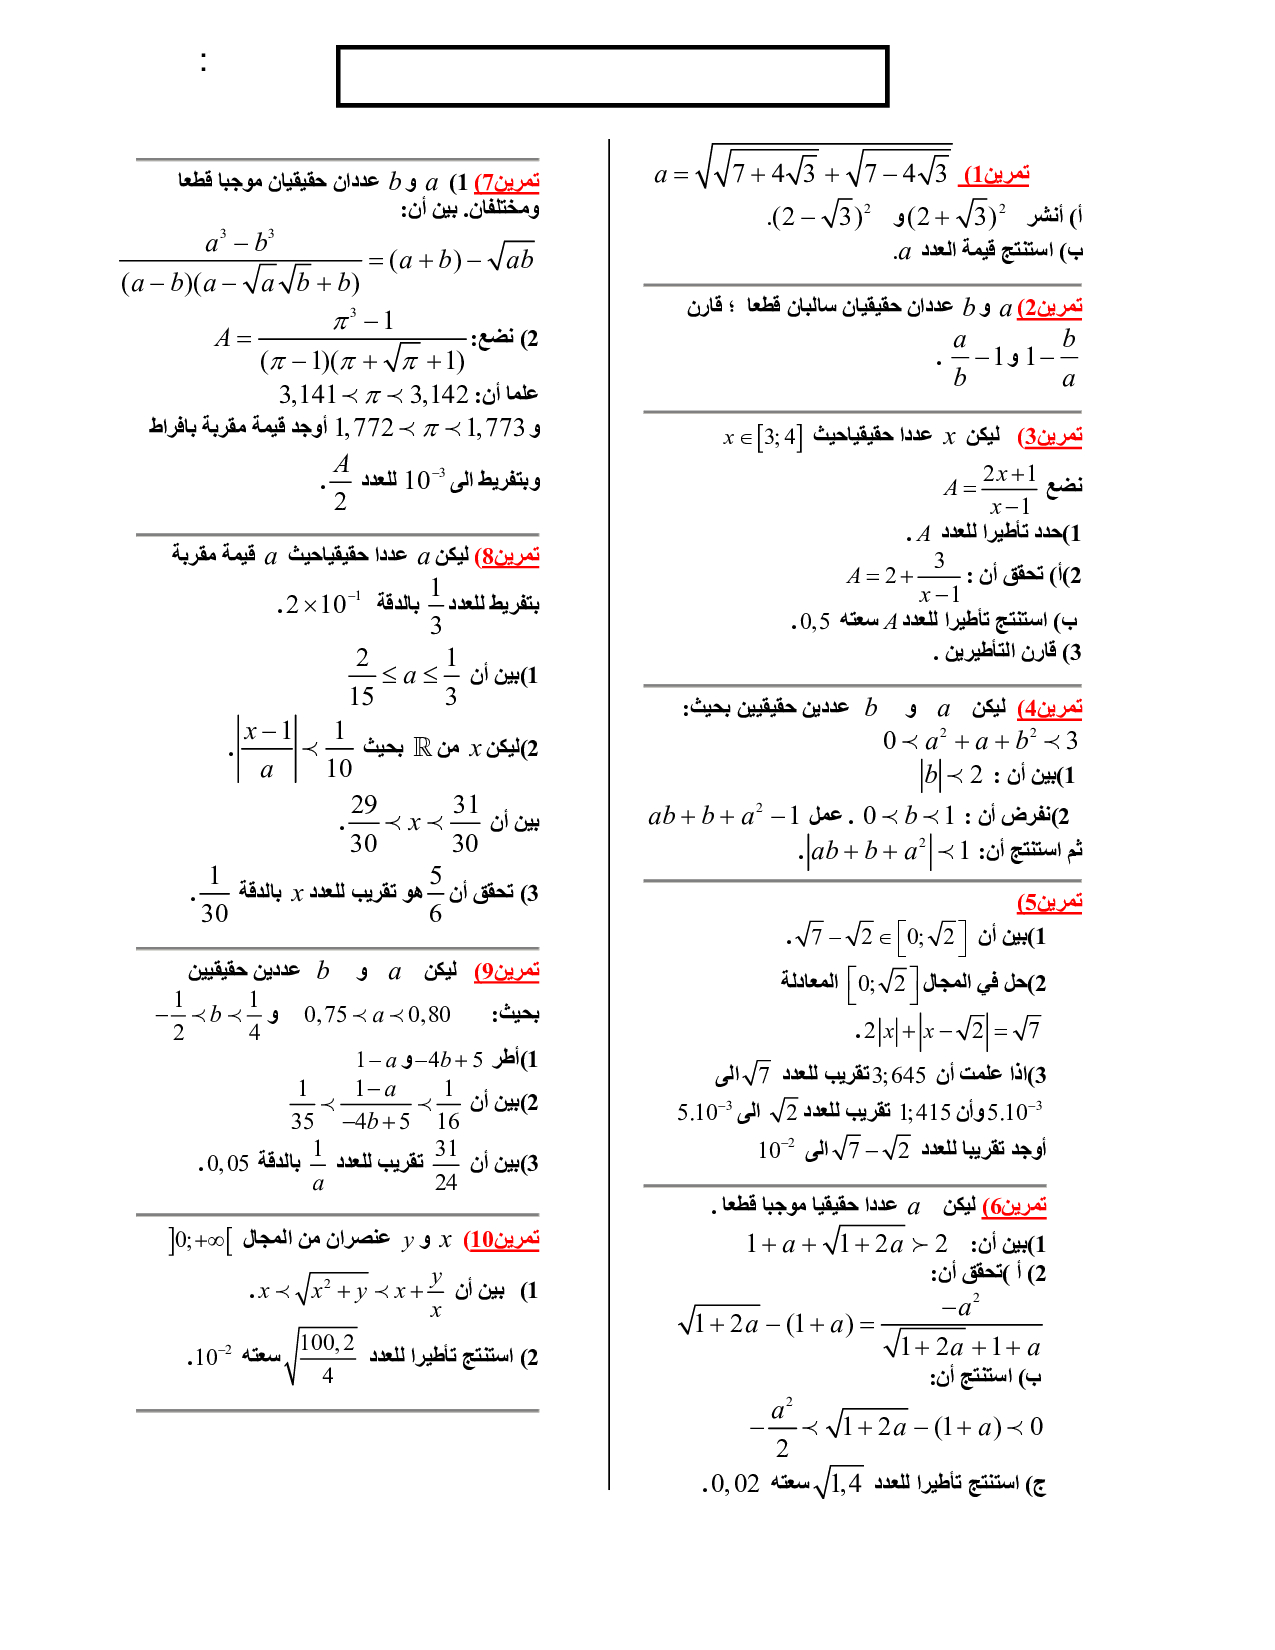 :
تمرين1) a = √(√(7+4√3) + √(7−4√3))
أ) أنشر (2+√3)² و (2−√3)².
ب) استنتج قيمة العدد a.
تمرين2) a و b عددان حقيقيان سالبان قطعا ؛ قارن
1 − b/a و a/b − 1 .
تمرين3) ليكن x عددا حقيقياحيث x ∈ [3;4]
نضع A = (2x+1)/(x−1)
1)حدد تأطيرا للعدد A .
2)أ) تحقق أن : A = 2 + 3/(x−1)
ب) استنتج تأطيرا للعدد A سعته 0,5 .
3) قارن التأطيرين .
تمرين4) ليكن a و b عددين حقيقيين بحيث:
0 ≺ a² + a + b² ≺ 3
1)بين أن : |b| ≺ 2
2)نفرض أن : 0 ≺ b ≺ 1 . عمل ab + b + a² − 1
ثم استنتج أن: |ab + b + a²| ≺ 1 .
تمرين5)
1)بين أن √7 − √2 ∈ [0;√2] .
2)حل في المجال [0;√2] المعادلة
2|x| + |x − √2| = √7 .
3)اذا علمت أن 3;645 تقريب للعدد √7 الى
5.10⁻³ وأن 1;415 تقريب للعدد √2 الى 5.10⁻³
أوجد تقريبا للعدد √7 − √2 الى 10⁻²
تمرين6) ليكن a عددا حقيقيا موجبا قطعا .
1)بين أن: 1 + a + √(1+2a) ≻ 2
2) أ )تحقق أن:
√(1+2a) − (1+a) = −a²/(√(1+2a) + 1 + a)
ب) استنتج أن:
−a²/2 ≺ √(1+2a) − (1+a) ≺ 0
ج) استنتج تأطيرا للعدد √1,4 سعته 0,02 .
تمرين7) 1) a و b عددان حقيقيان موجبا قطعا
ومختلفان. بين أن:
(a³ − b³)/((a−b)(a − √a√b + b)) = (a+b) − √ab
2) نضع: A = (π³ − 1)/((π−1)(π + √π + 1))
علما أن: 3,141 ≺ π ≺ 3,142
و 1,772 ≺ π ≺ 1,773 أوجد قيمة مقربة بافراط
وبتفريط الى 10⁻³ للعدد A/2 .
تمرين8) ليكن a عددا حقيقياحيث a قيمة مقربة
بتفريط للعدد 1/3 بالدقة 2×10⁻¹ .
1)بين أن 2/15 ≤ a ≤ 1/3
2)ليكن x من ℝ بحيث |(x−1)/a| ≺ 1/10 .
بين أن 29/30 ≺ x ≺ 31/30 .
3) تحقق أن 5/6 هو تقريب للعدد x بالدقة 1/30 .
تمرين9) ليكن a و b عددين حقيقيين
بحيث: 0,75 ≺ a ≺ 0,80 و −1/2 ≺ b ≺ 1/4
1)أطر −4b + 5 و 1 − a
2)بين أن 1/35 ≺ (1−a)/(−4b+5) ≺ 1/16
3)بين أن 31/24 تقريب للعدد 1/a بالدقة 0,05 .
تمرين10) x و y عنصران من المجال ]0;+∞[
1) بين أن x ≺ √(x²+y) ≺ x + y/x .
2) استنتج تأطيرا للعدد √(100,2/4) سعته 10⁻² .